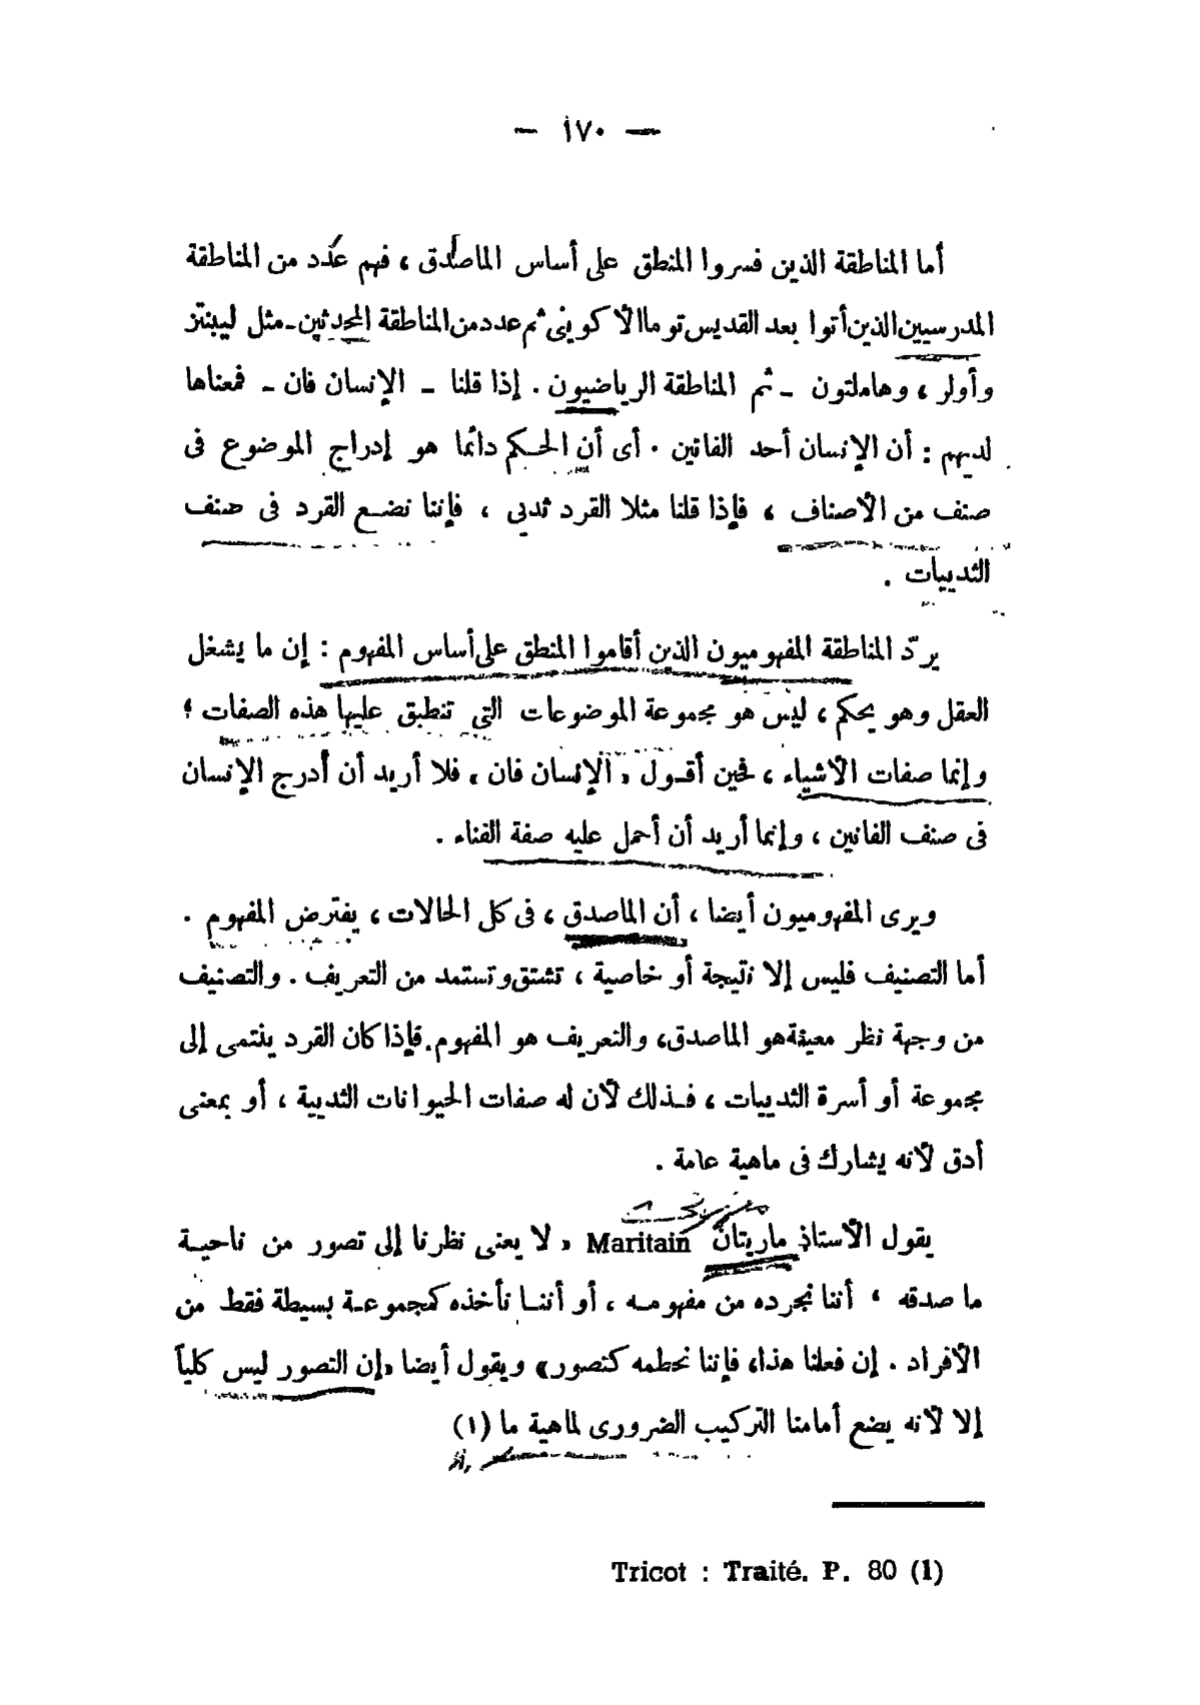 — ١٧٠ —
أما المناطقة الذين فسروا المنطق على أساس الماصدق ، فهم عدد من المناطقة
المدرسيين الذين أتوا بعد القديس توما الأكوينى ثم عدد من المناطقة المحدثين - مثل ليبنتز
وأولر ، وهاملتون - ثم المناطقة الرياضيون . إذا قلنا - الإنسان فان - فمعناها
لديهم : أن الإنسان أحد الفانين . أى أن الحكم دائما هو إدراج الموضوع فى
صنف من الأصناف ، فإذا قلنا مثلا القرد ثديى ، فإننا نضع القرد فى صنف
الثدييات .
يردّ المناطقة المفهوميون الذين أقاموا المنطق على أساس المفهوم : إن ما يشغل
العقل وهو يحكم ، ليس هو مجموعة الموضوعات التى تنطبق عليها هذه الصفات ؛
وإنما صفات الأشياء ، فحين أقول « الإنسان فان » فلا أريد أن أدرج الإنسان
فى صنف الفانين ، وإنما أريد أن أحمل عليه صفة الفناء .
ويرى المفهوميون أيضا ، أن الماصدق ، فى كل الحالات ، يفترض المفهوم .
أما التصنيف فليس إلا نتيجة أو خاصية ، تشتق وتستمد من التعريف . والتصنيف
من وجهة نظر معينة هو الماصدق، والتعريف هو المفهوم. فإذا كان القرد ينتمى إلى
مجموعة أو أسرة الثدييات ، فذلك لأن له صفات الحيوانات الثديية ، أو بمعنى
أدق لأنه يشارك فى ماهية عامة .
يقول الأستاذ ماريتان Maritain « لا يعنى نظرنا إلى تصور من ناحية
ما صدقه ، أننا نجرده من مفهومه ، أو أننا نأخذه كمجموعة بسيطة فقط من
الأفراد . إن فعلنا هذا، فإننا نحطمه كتصور» ويقول أيضا «إن التصور ليس كلياً
إلا لأنه يضع أمامنا التركيب الضرورى لماهية ما (١)
Tricot : Traité. P. 80 (1)